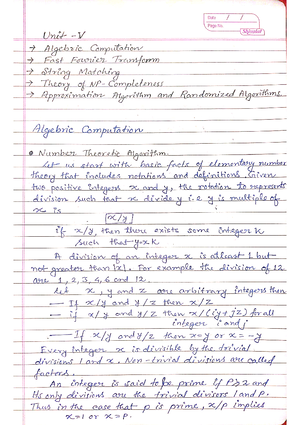 Date / /
Page No.
Unit - V
→ Algebric Computation
→ Fast Fourier Transform
→ String Matching
→ Theory of NP-Completeness
→ Approximation Algorithm and Randomized Algorithms
Algebric Computation
• Number Theoretic Algorithm
Let us start with basic facts of elementary number
theory that includes notations and definitions. Given
two positive integers x and y, the notation to represents
division such that x divide y i.e y is multiple of
x is
[x/y]
if x/y, then there exists some integer K
such that y=x.K
A division of an integer x is atleast 1 but
not greater than |x|. For example the division of 12
are 1, 2, 3, 4, 6 and 12.
Let x, y and z are arbitrary integers then
— If x/y and y/z then x/z
— if x/y and y/z then x/(iy+jz) for all
integer i and j
— If x/y and y/z then x=y or x=-y
Every integer x is divisible by the trivial
divisions 1 and x. Non-trivial divisions are called
factors.
An integer is said to be prime if P≥2 and
its only divisions are the trivial divisors 1 and P.
Thus in the case that p is prime, x/p implies
x=1 or x=p.